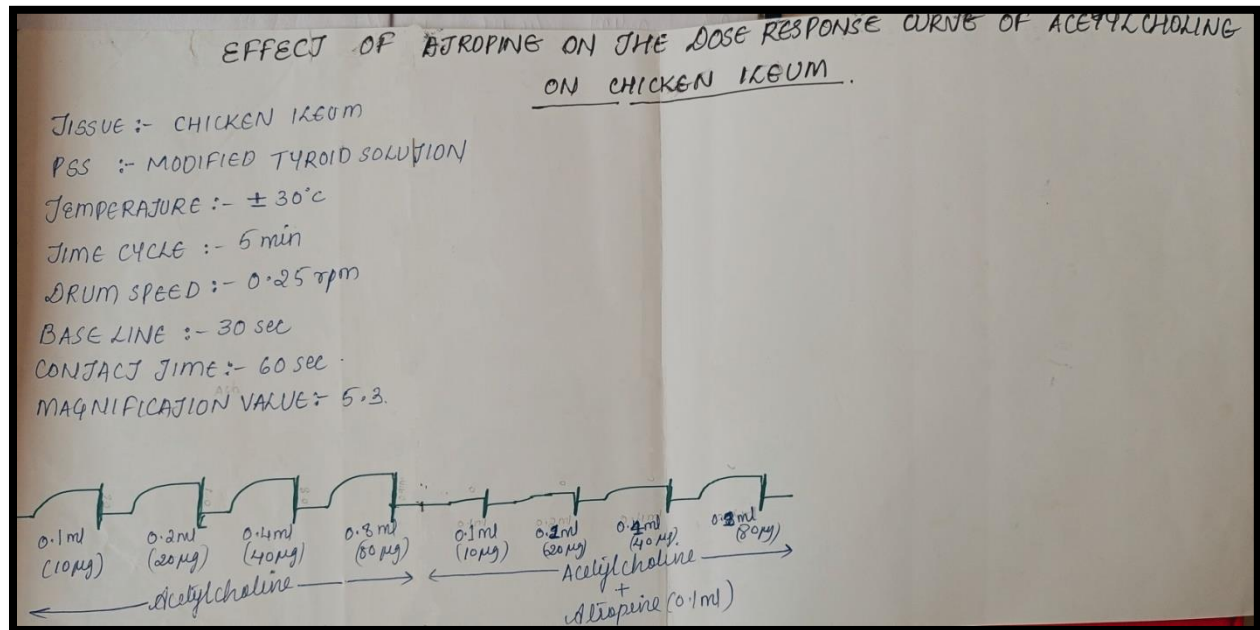 EFFECT OF ATROPINE ON THE DOSE RESPONSE CURVE OF ACETYLCHOLINE
ON CHICKEN ILEUM.
TISSUE :- CHICKEN ILEUM
PSS :- MODIFIED TYROID SOLUTION
TEMPERATURE :- ± 30°C
TIME CYCLE :- 5 min
DRUM SPEED :- 0.25 rpm
BASE LINE :- 30 sec
CONTACT TIME :- 60 sec.
MAGNIFICATION VALUE :- 5.3.
0.1ml 0.2ml 0.4ml 0.8ml 0.1ml 0.2ml 0.4ml 0.8ml
(10µg) (20µg) (40µg) (80µg) (10µg) (20µg) (40µg) (80µg)
Acetylcholine Acetylcholine
+
Atropine (0.1ml)